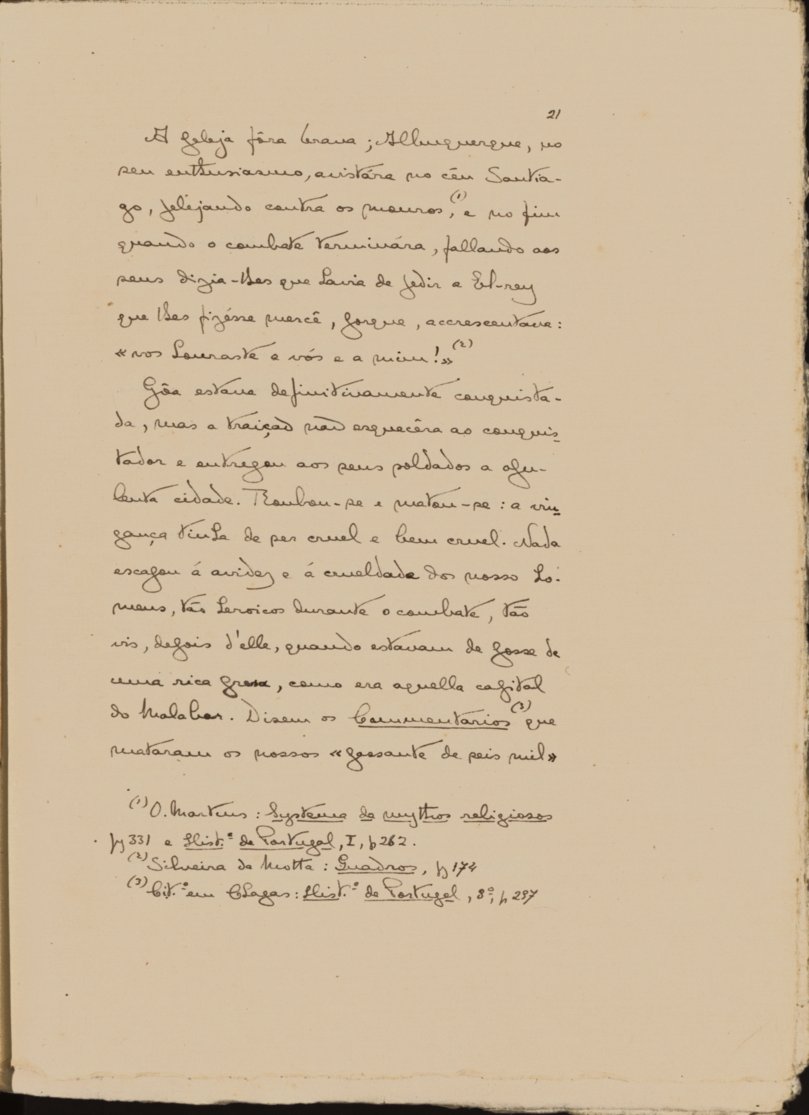 21
A peleja fôra brava; Albuquerque, no
seu enthusiasmo, avistára no céu Santia-
go, pelejando contra os mouros,⁽¹⁾ e no fim
quando o combate terminára, fallando aos
seus dizia-lhes que havia de pedir a El-rey
que lhes fizésse mercê, porque, accrescentava:
«vos honraste a vós e a mim!»⁽²⁾
Gôa estava definitivamente conquista-
da, mas a traição não esquecêra ao conquis-
tador e entregou aos seus soldados a opu-
lenta cidade. Roubou-se e matou-se: a vin-
gança tinha de ser cruel e bem cruel. Nada
escapou á avidez e á crueldade dos nosso ho-
mens, tão heroicos durante o combate, tão
vis, depois d'elle, quando estavam de posse de
uma rica presa, como era aquella capital
do Malabar. Disem os Commentarios⁽³⁾ que
mataram os nossos «passante de seis mil»
⁽¹⁾ O. Martins: Systema de mythos religiosos
pg 331 e Hist.ª de Portugal, I, p 262.
⁽²⁾ Silveira da Motta: Quadros, pg 174
⁽³⁾ Cit.º em Chagas: Hist.ª de Portugal, 3º, p 297